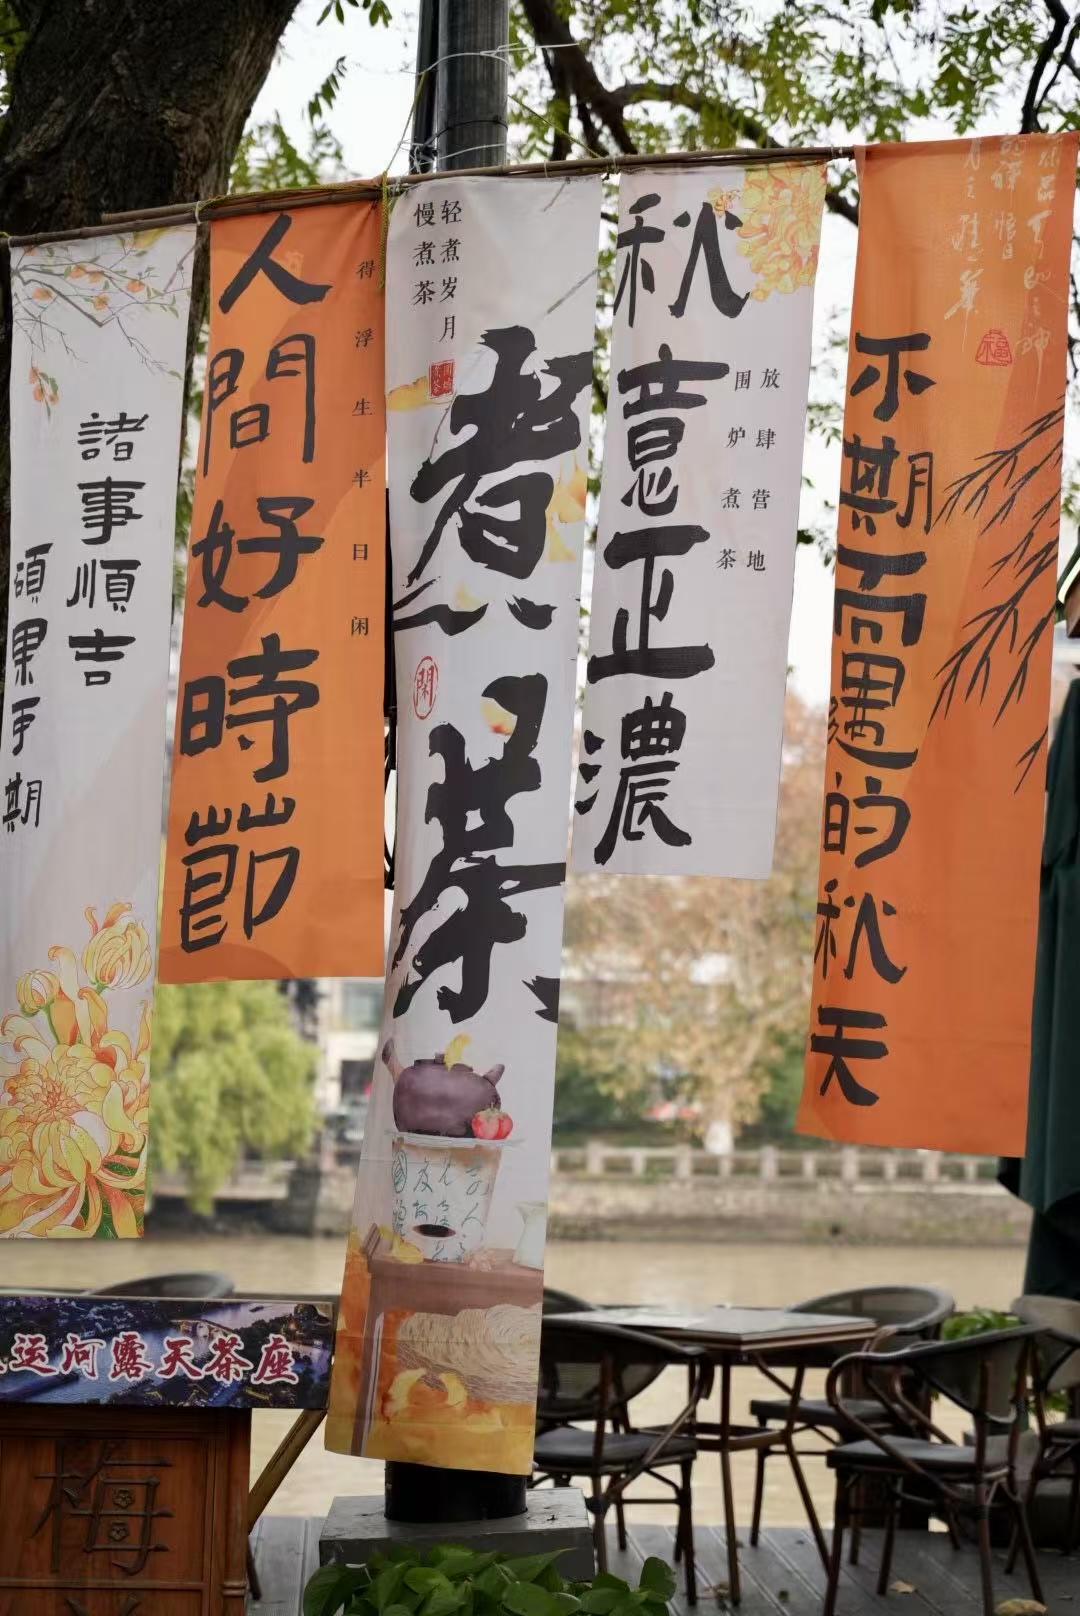 諸事順吉
碩果可期
人間好時節
得浮生半日闲
轻煮岁月
慢煮茶
煮茶
閑
秋意正濃
放肆营地
围炉煮茶
不期而遇的秋天
福
运河露天茶座
梅